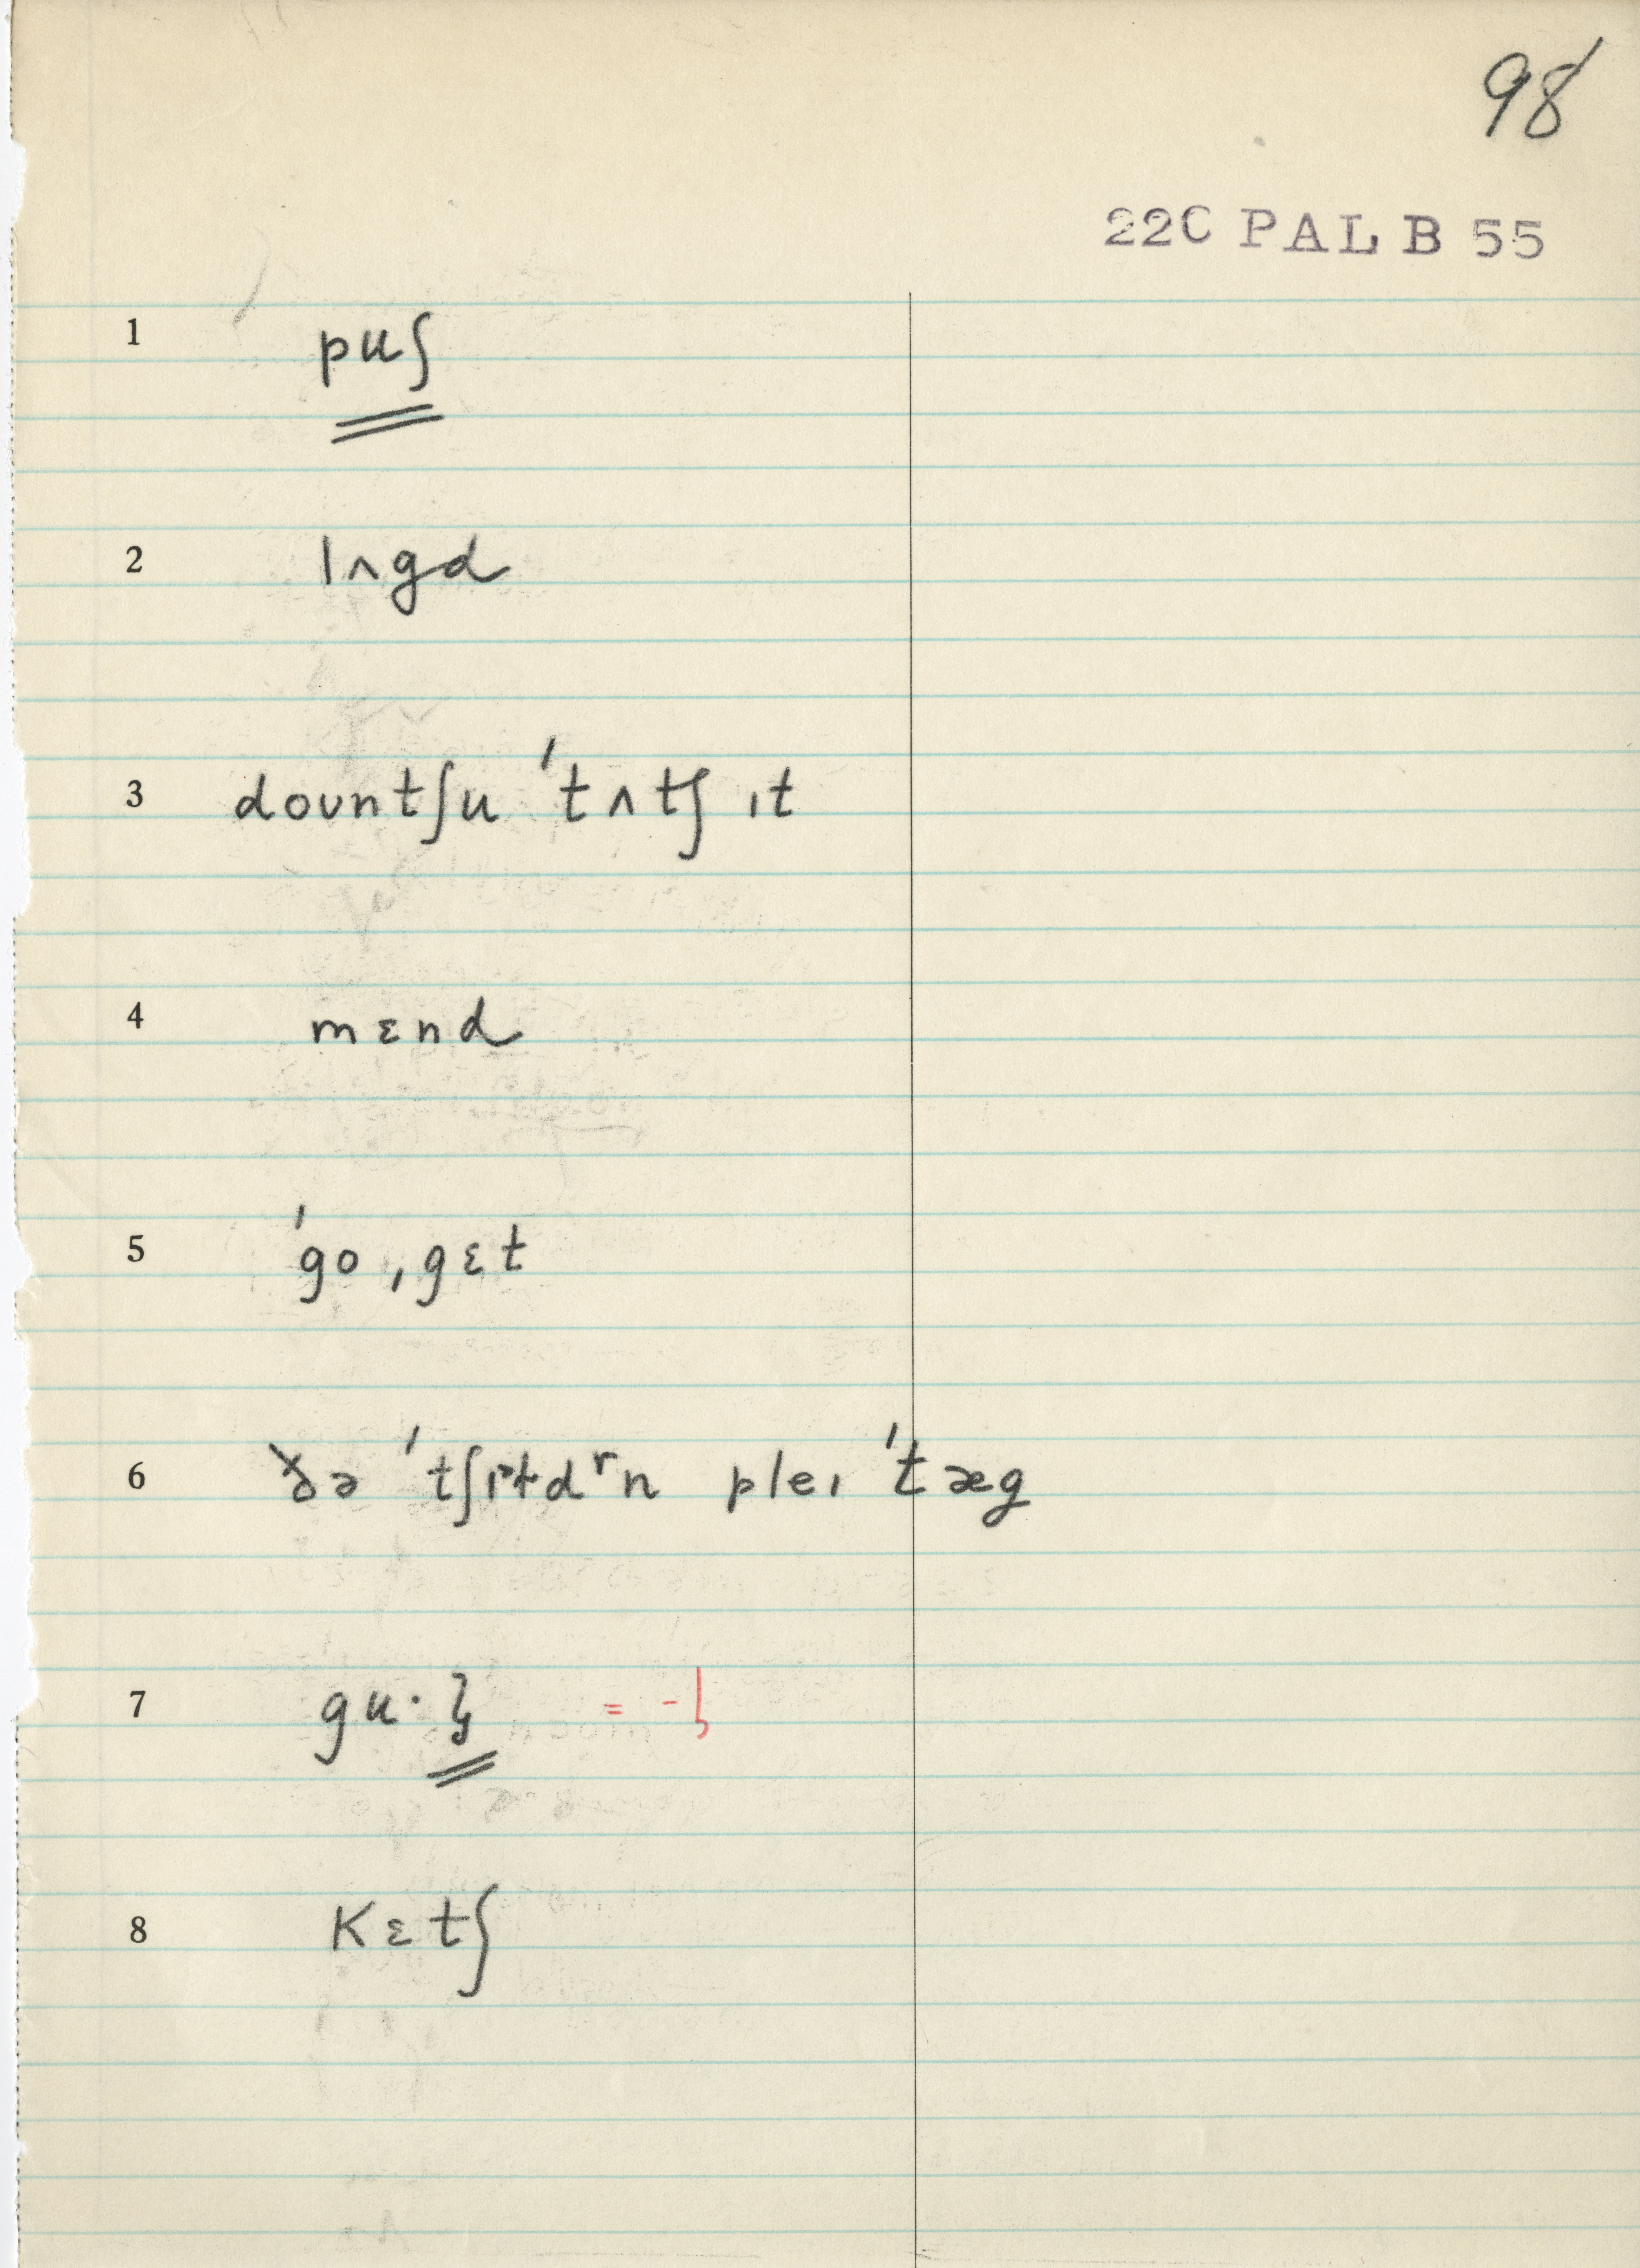 98
22C PAL B 55
1 puʃ
2 lʌgd
3 doʊntʃu ˈtʌtʃ ɪt
4 mɛnd
5 ˈgo ˌgɛt
6 ðə ˈtʃɪɫdʳn pleɪ ˈtæg
7 gu·
8 kɛtʃ